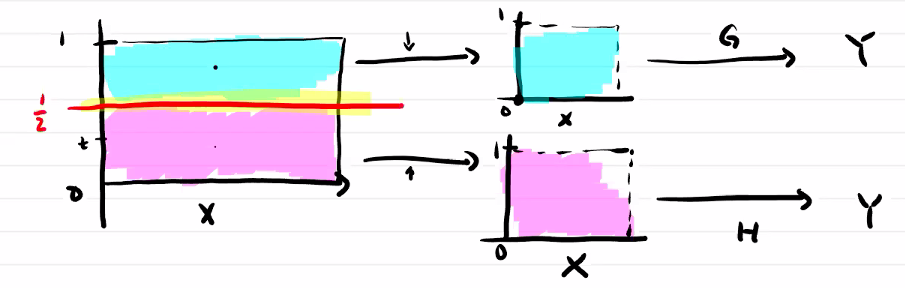 1
1/2
t
0
X
1
0
X
G
Y
1
0
X
H
Y